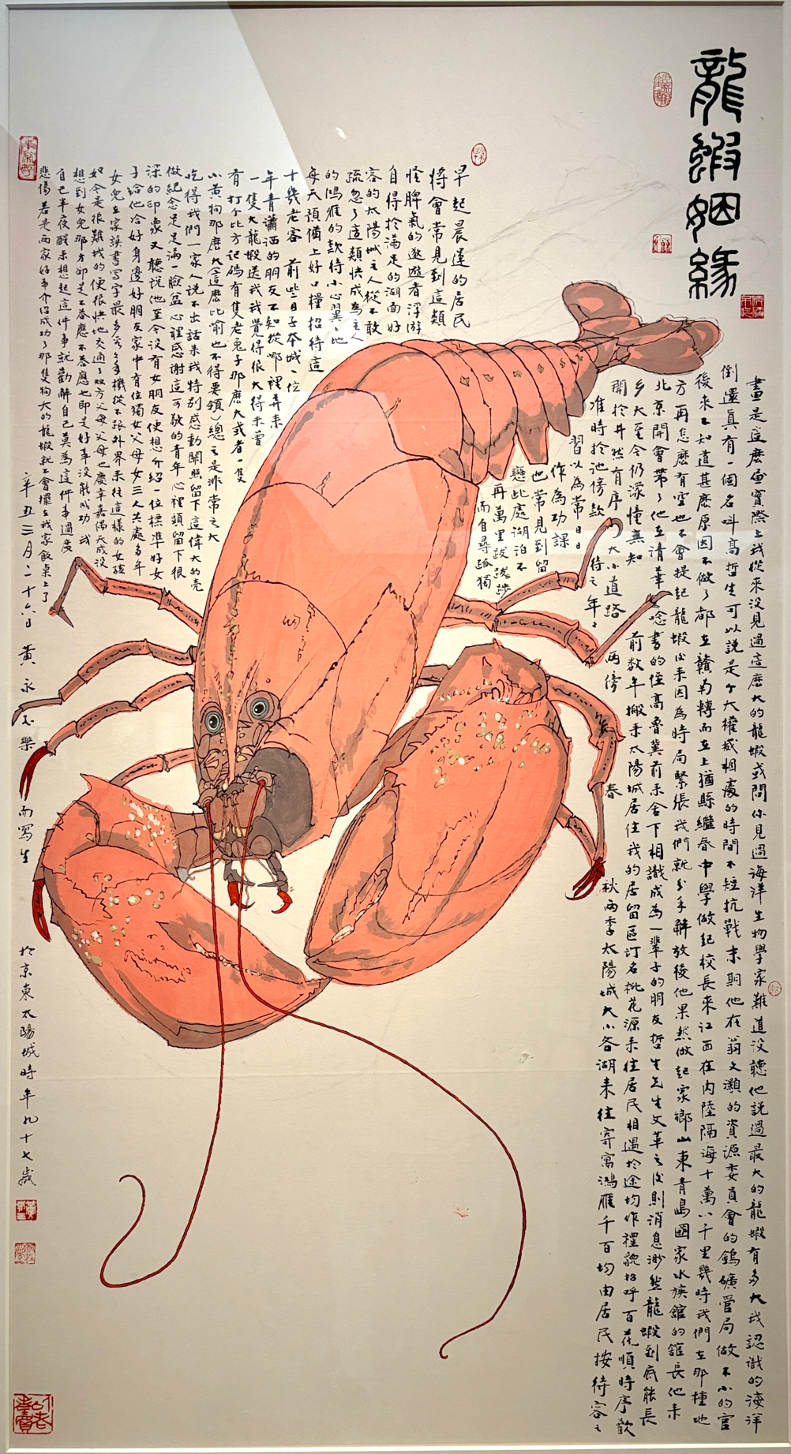 龍蝦姻緣
畫是這麼畫實際上我從來沒見過這麼大的龍蝦或問你見過海洋生物學家難道沒聽他說過最大的龍蝦有多大我認識的海洋
倒還真有一個名叫高哲生可以說是个大權威相處的時間不短抗戰末期他在翁文灝的資源委員會的鎢礦管局做不小的官
後來不知道甚麼原因不做了都在贛南轉而在上猶縣繼春中學做起校長來江西在內陸隔海十萬八千里幾時我們在那種地
方再怎麼有空也不會提起龍蝦來因為時局緊張我們就分手解放後他果然做起家鄉山東青島國家水族館的館長他來
北京開會帶了他在清華念書的侄高魯冀前來舍下相識成為一輩子的朋友哲生先生文革之後則消息渺然龍蝦到底能長
多大至今仍濛憧無知 前數年搬來太陽城居住我的居留區訂名桃花源來往居民相遇於途均作禮貌招呼百花順時序歡
開於井然有序之大小道路兩傍 春秋兩季太陽城大小各湖來往寄寓鴻雁千百均由居民按待客之
准時於池傍款待之年年
習以為常日日
作為功課
也常見到留
戀此處湖泊不
再萬里跋跋涉
而自尋孤獨
早起晨運的居民
將會常見到這類
怪脾氣的遨遊者浮游
自得於滿足的湖面好
客的太陽城主人從不敢
疏忽了這類快成為主人
的鴻雁的款待小心翼翼地
每天預備上好口糧招待這
十幾老客 前些日子本城一位
年青瀟洒的朋友不知從哪裡弄來
一隻大龍蝦送我我覺得很大得未曾
有打个比方起碼有隻老兔子那麼大或者一隻
小黃狗那麼大這麼比前也不得要領總之是非常之大
吃得我們一家人說不出話來我特別感動關照留下這偉大的殼
做紀念足足滿一臉盆心裡感謝這可敬的青年心裡頭留下很
深的印象又聽說他至今沒有女朋友便想介紹一位標準好女
子給他恰好身邊好朋友家中有位獨女父母女三人共處多年
女兒在家讀書寫字最多手機從不跟外界來往這樣的女孩
如今是很難找的便很快地交通了雙方父母父母也慶幸嘉偶天成沒
想到女兒那方卻是不答應不答應也即是好事沒能成功我
自己半夜醒來想起這件事就勸解自己莫為這件事過度
悲傷若是兩家好事介紹成功了那隻狗大的龍蝦就不會擺在我家飯桌上了
辛丑三月二十六日 黃永玉樂而寫生 於京東太陽城時年九十七歲